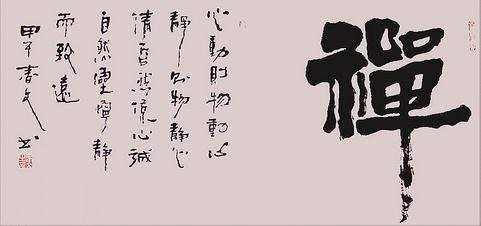 禪
心動則物動心
靜則物靜心
清自然涼心誠
自然靈寧靜
而致遠
甲午春文书